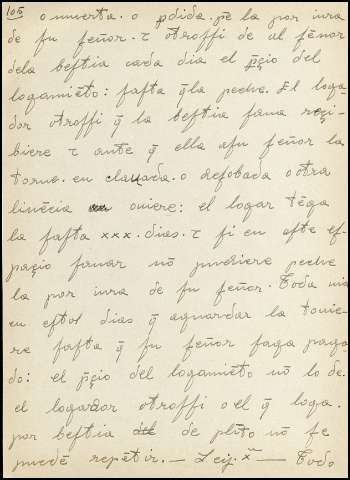 105 o muerta. o pdida. pẽ la por iura
de fu feñor. τ otroffi de al feñor
dela beftia cada dia el p̃çio del
logamiẽto: fafta q̃la peche. El loga-
dor otroffi q̃ la beftia fana reçi-
biere τ ante q̃ ella afu feñor la
torne. en clauada. o defobada o otra
linẽcia ouiere: el logar tẽga
la fafta xxx. dias. τ fi en efte ef-
paçio fanar nõ pudiere peche
la por iura de fu feñor. Toda uia
en eftos dias q̃ aguardar la touie-
re fafta q̃ fu feñor faga paga-
do: el p̃çio del logamiẽto nõ lo de.
el logador otroffi o el q̃ loga.
por beftia de plito nõ fe
puedẽ repẽtir. — Leij. xᵃ — Todo